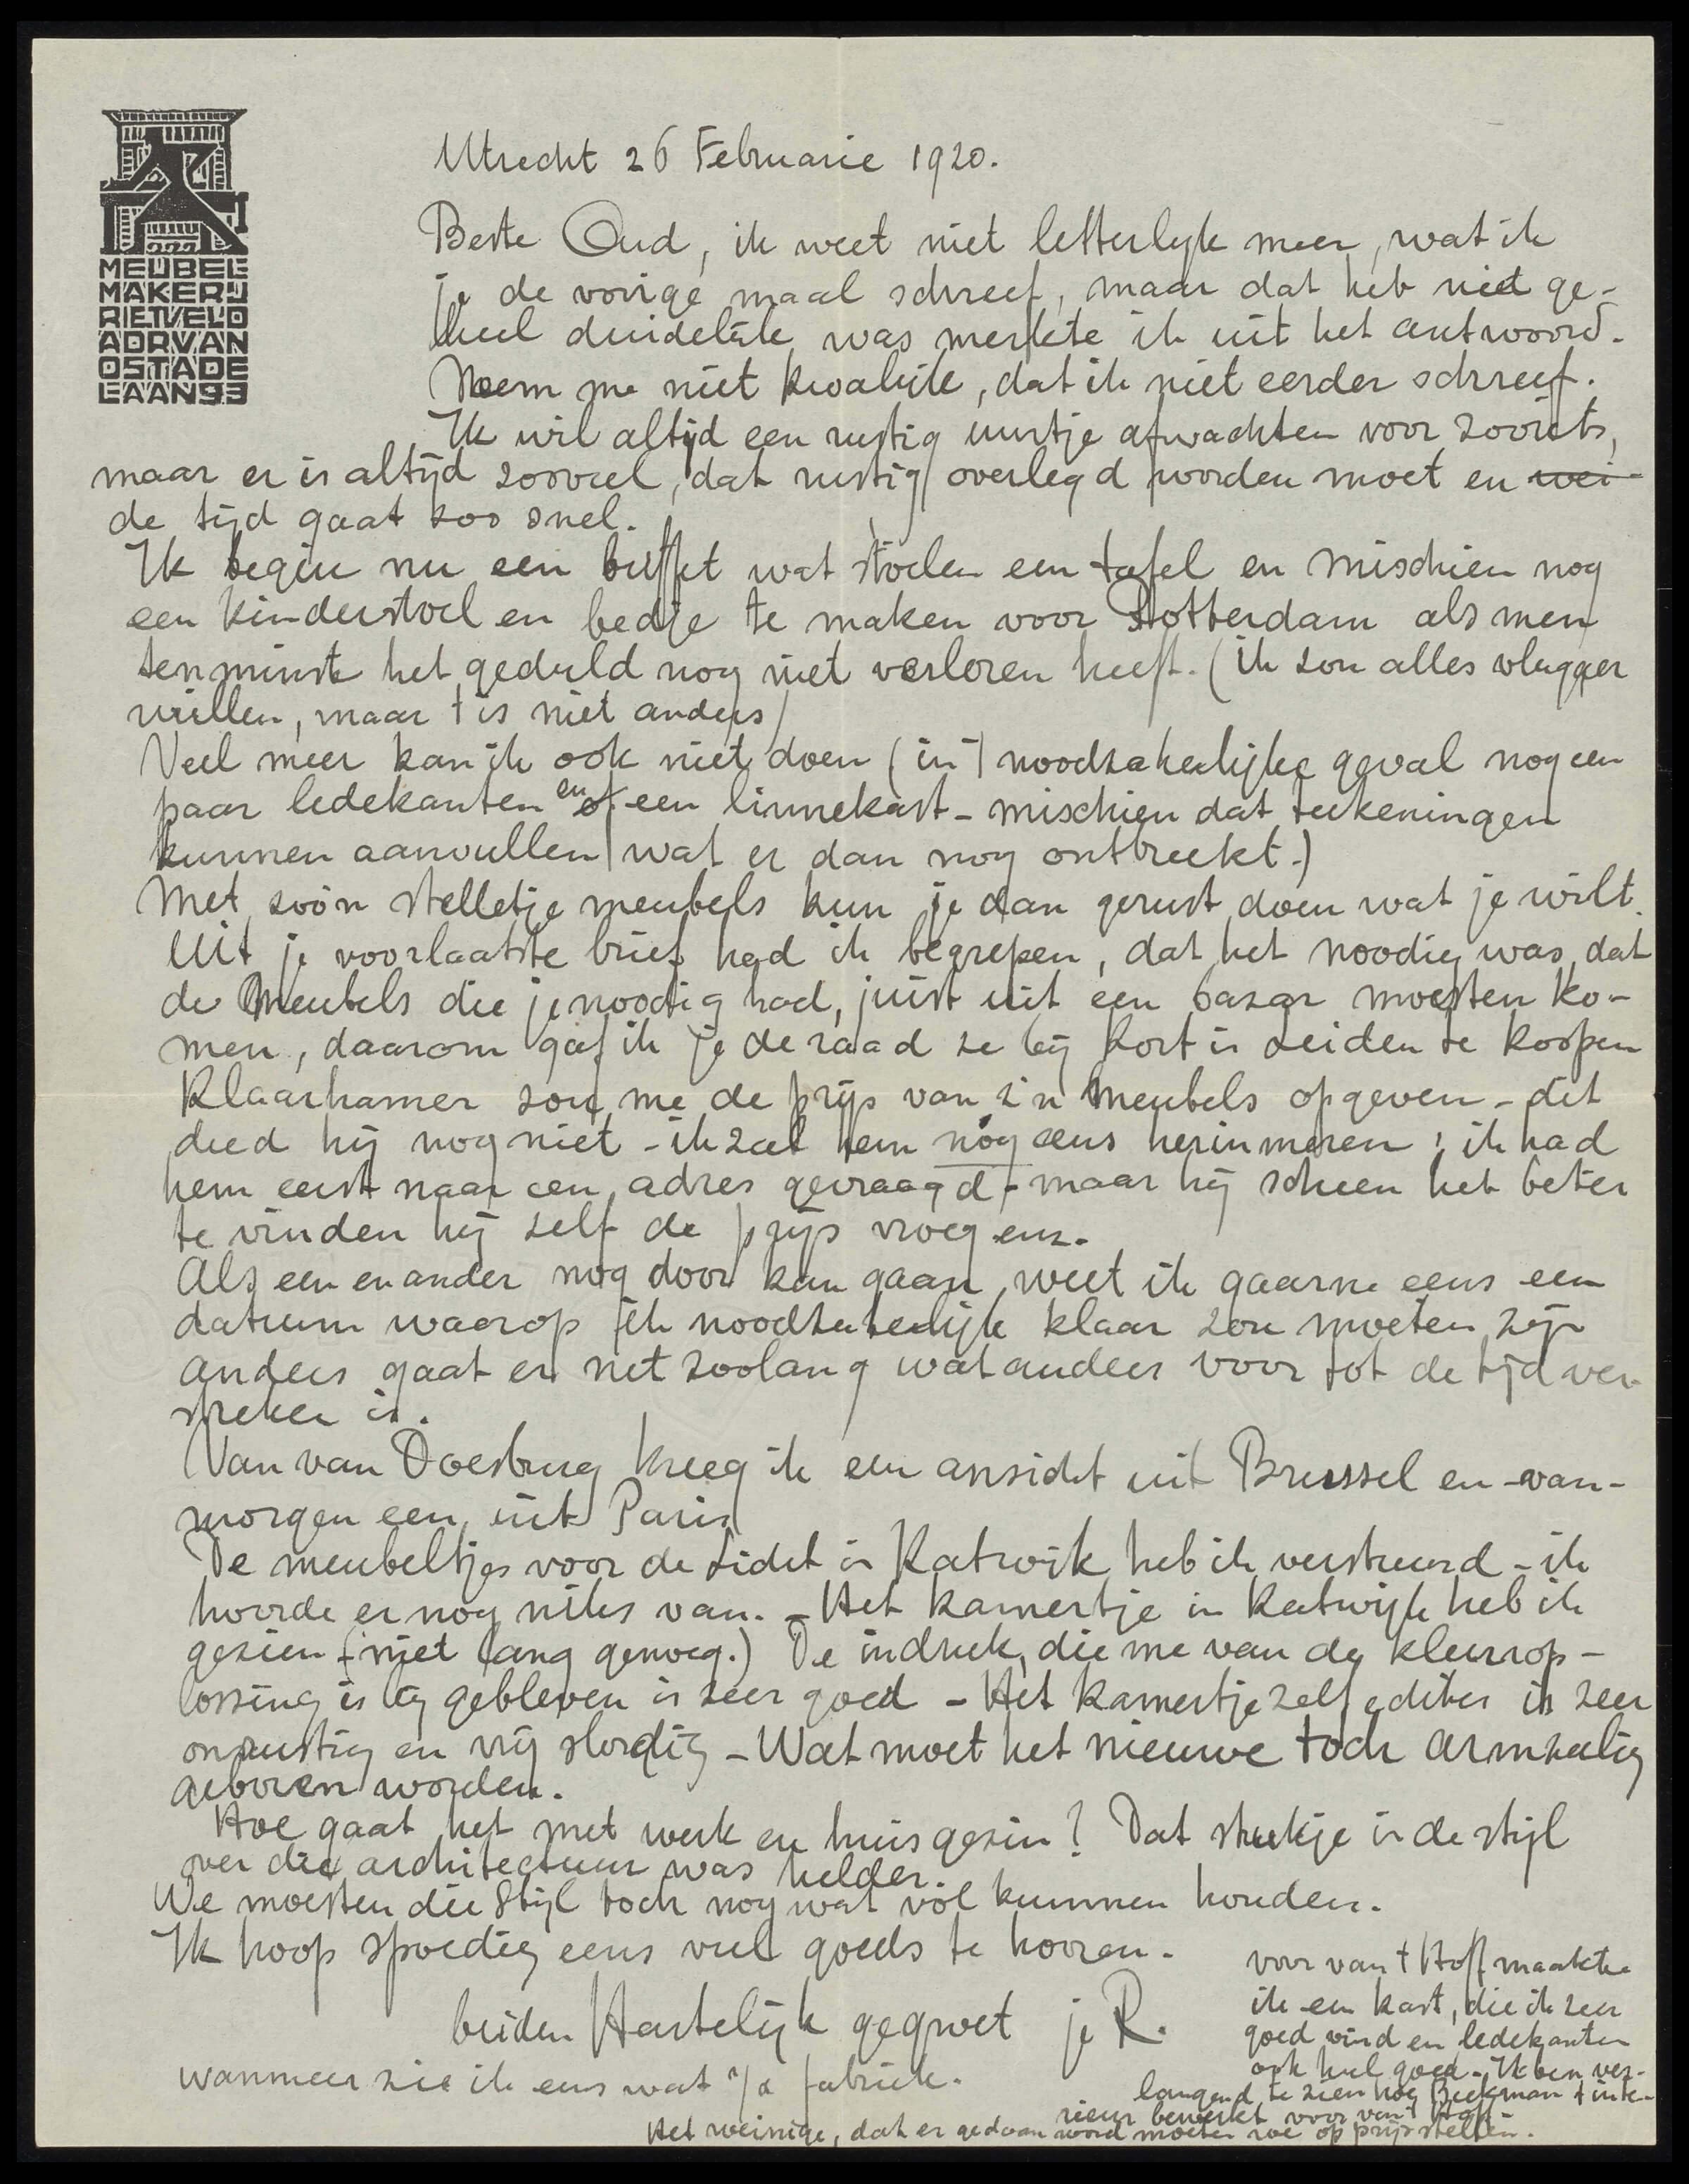 MEUBEL
MAKERIJ
RIETVELD
ADR.VAN
OSTADE
LAAN 93
Utrecht 26 Februarie 1920.
Beste Oud, ik weet niet letterlyk meer, wat ik
je de vorige maal schreef, maar dat het niet ge-
heel duidelijk was merkte ik uit het antwoord.
Neem me niet kwalijk, dat ik niet eerder schreef.
Ik wil altijd een rustig uurtje afwachten voor zooiets,
maar er is altijd zooveel, dat rustig overlegd worden moet en wei
de tijd gaat zoo snel.
Ik begin nu een buffet wat stoelen een tafel en mischien nog
een kinderstoel en bedje te maken voor Rotterdam als men
tenminste het geduld nog niet verloren heeft. (ik zou alles vlugger
willen, maar t is niet anders)
Veel meer kan ik ook niet doen (in t noodzakelijke geval nog een
paar ledekanten en of een linnekast - mischien dat teekeningen
kunnen aanvullen wat er dan nog ontbreekt.)
Met zoo'n stelletje meubels kun je dan gerust doen wat je wilt.
Uit je voorlaatste brief had ik begrepen, dat het noodig was, dat
de meubels die je noodig had, juist uit een bazar moesten ko-
men, daarom gaf ik je de raad ze bij Kort in Leiden te koopen
Klaarhamer zou me de prijs van z'n meubels opgeven - dit
deed hij nog niet - ik zal hem nog eens herinneren; ik had
hem eerst naar een adres gevraagd - maar hij scheen het beter
te vinden hij zelf de prijs vroeg enz.
Als een en ander nog door kan gaan, weet ik gaarne eens een
datum waarop ik noodzakelijk klaar zou moeten zijn
anders gaat er net zoolang wat anders voor tot de tijd ver-
streken is.
Van van Doesburg kreeg ik een ansicht uit Brussel en van-
morgen een uit Paris
De meubeltjes voor de Ligt in Katwijk heb ik verstuurd - ik
hoorde er nog niks van. - Het kamertje in Katwijk heb ik
gezien (niet lang genoeg.) De indruk, die me van de kleurop-
lossing is bij gebleven is zeer goed - Het kamertje zelf echter is zeer
onrustig en vrij slordig - Wat moet het nieuwe toch armzalig
geboren worden.
Hoe gaat het met werk en huisgezin? Dat stukje in de stijl
over die architectuur was helder.
We moesten die Stijl toch nog wat vol kunnen houden.
Ik hoop spoedig eens veel goeds te hooren.
beiden Hartelijk gegroet je R.
wanneer zie ik eens wat v/d fabriek.
voor van t Hoff maakte
ik een kast, die ik zeer
goed vind en ledekanten
ook heel goed. - Ik ben ver-
langend te zien hoe Beekman t inte-
rieur bewerkt voor van t Hoff -
Het weinige, dat er gedaan word moeten we op prijs stellen.